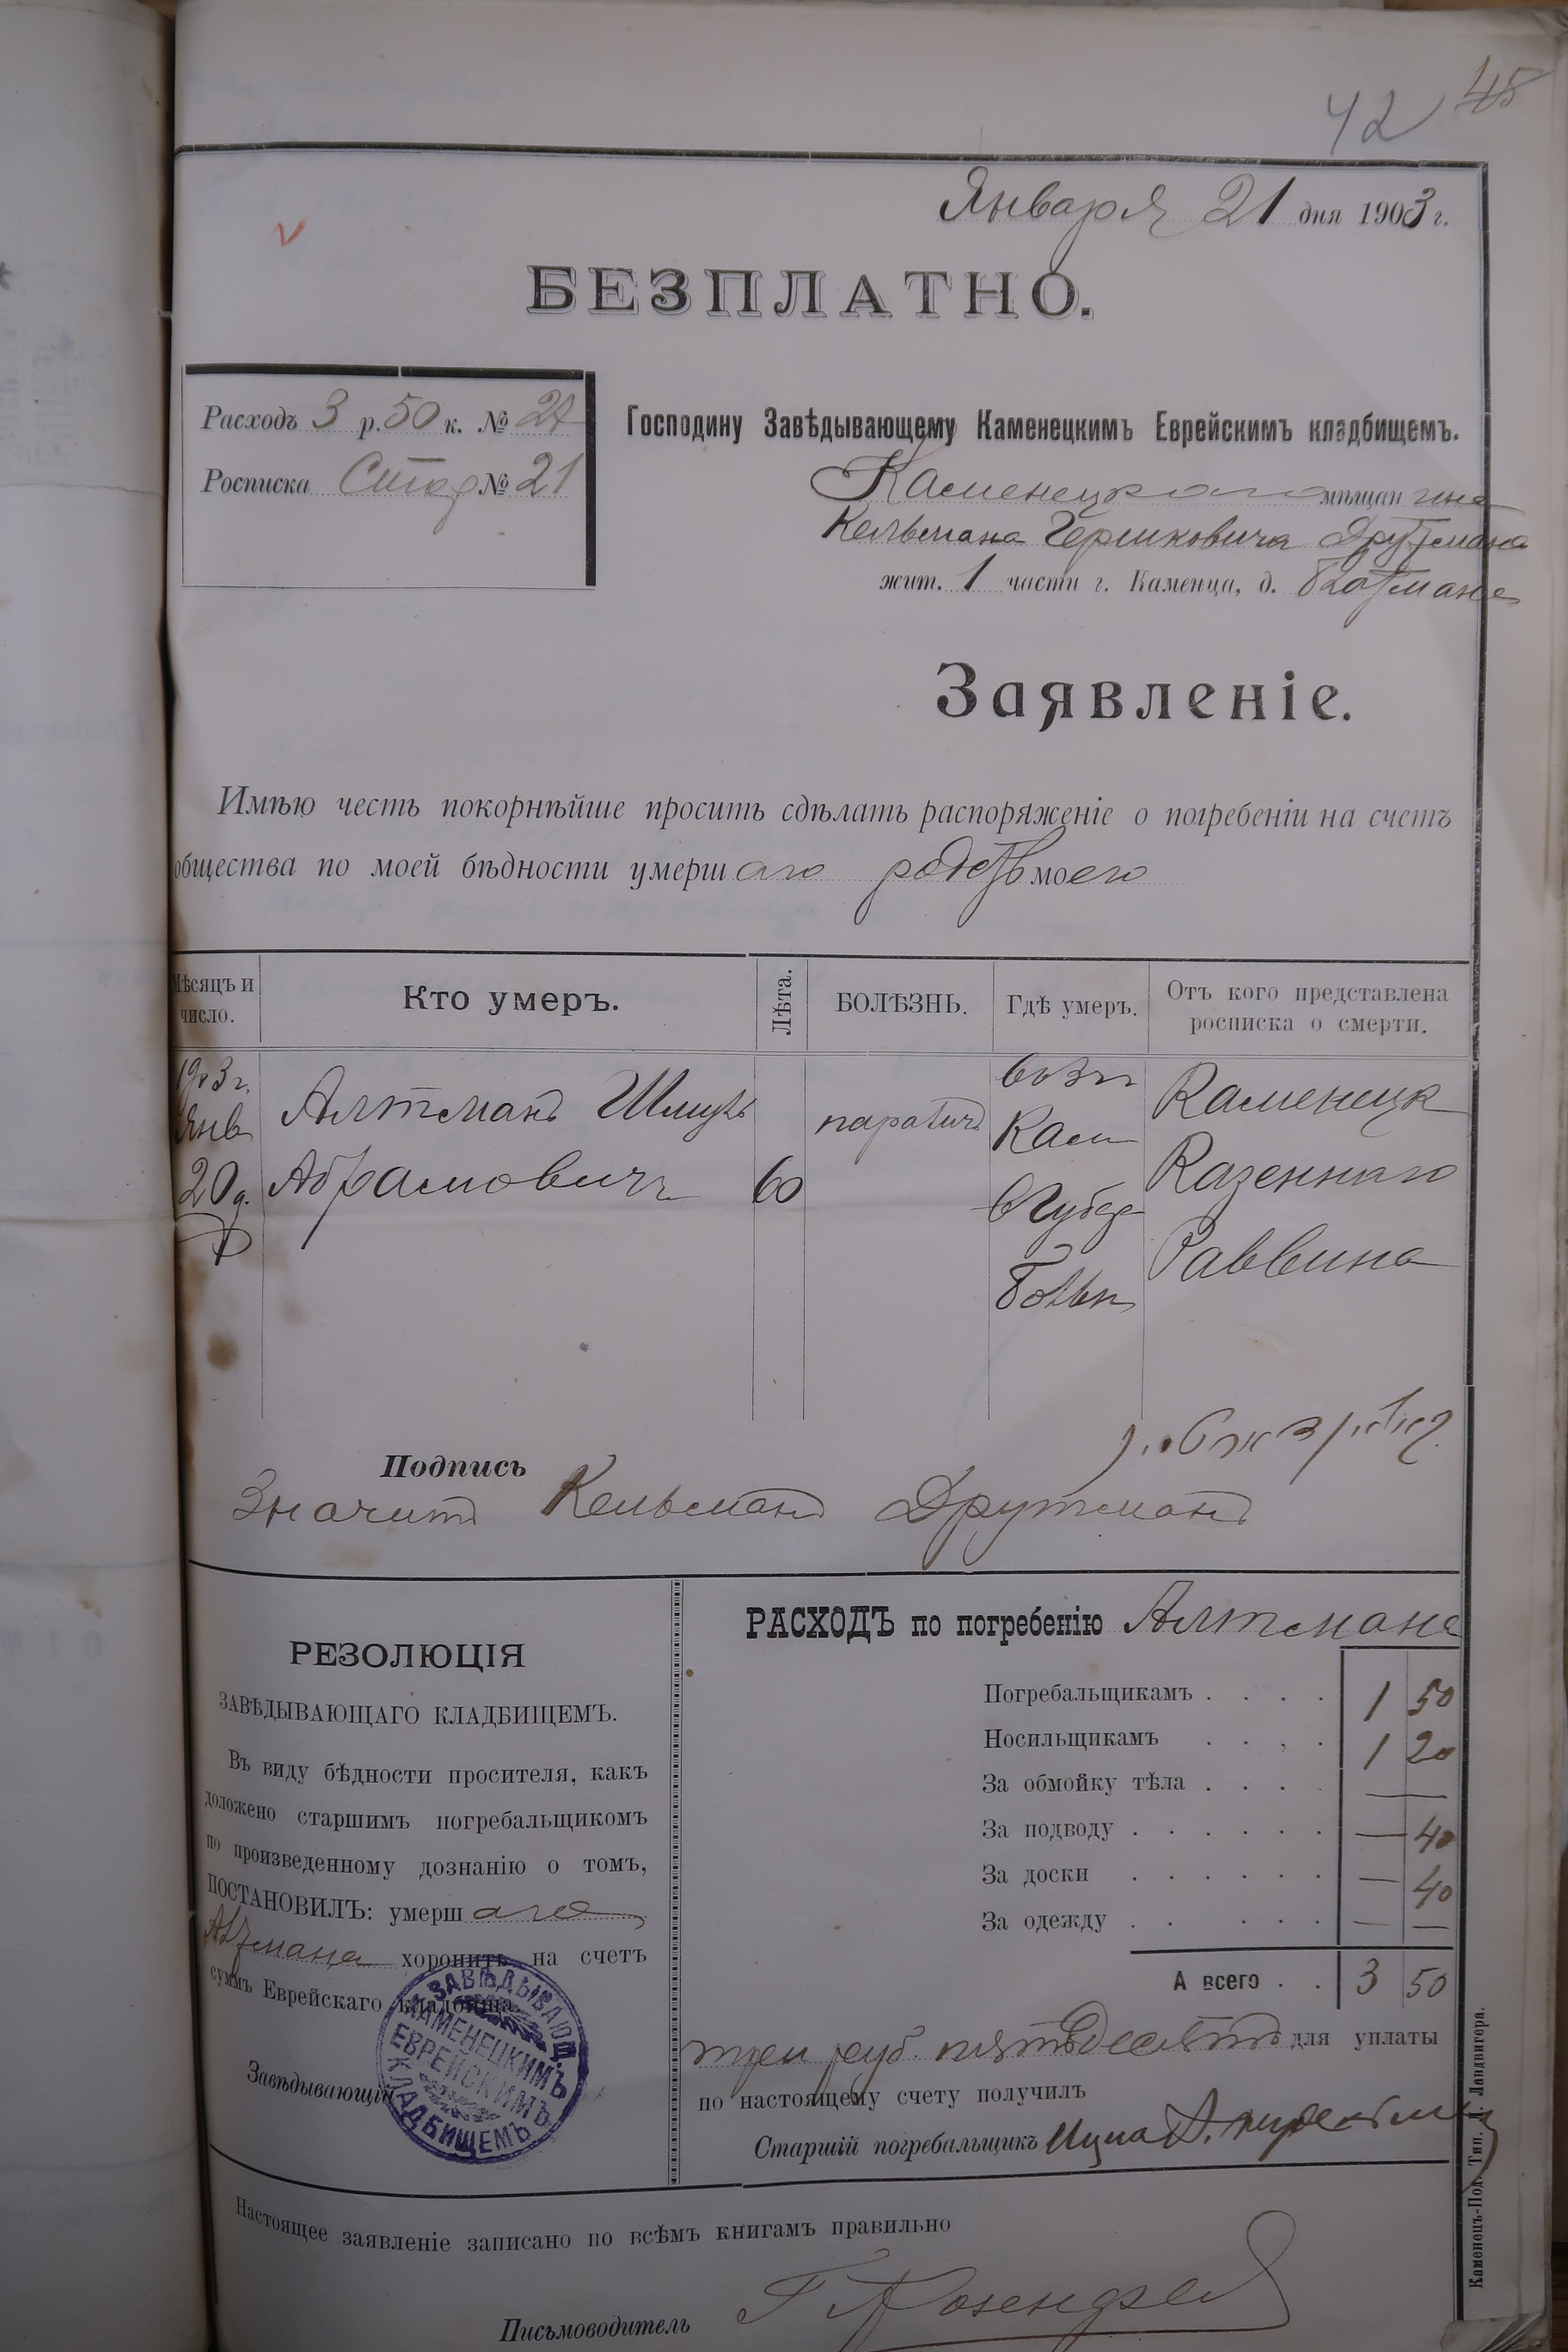 42 45
Января 21 дня 1903 г.
БЕЗПЛАТНО.
Расходъ 3 р. 50 к. №
Росписка № 21
Господину Завѣдывающему Каменецкимъ Еврейскимъ кладбищемъ.
Каменецкаго мѣщанина
Кельмана Гершковича Друтмана
жит. 1 части г. Каменца, д.
Заявленіе.
Имѣю честь покорнѣйше просить сдѣлать распоряженіе о погребеніи на счетъ
общества по моей бѣдности умершаго родств моего
Мѣсяцъ и число.
Кто умеръ.
Лѣта.
БОЛѢЗНЬ.
Гдѣ умеръ.
Отъ кого представлена росписка о смерти.
1903 г. Янв 20 д.
Алтманъ Шмуль
Абрамовичъ
60
Кам
Губер
Больн
Каменецк
Казеннаго
Раввина
Подпись
Значитъ Кельманъ Друтманъ
РЕЗОЛЮЦІЯ
ЗАВѢДЫВАЮЩАГО КЛАДБИЩЕМЪ.
Въ виду бѣдности просителя, какъ
доложено старшимъ погребальщикомъ
по произведенному дознанію о томъ,
ПОСТАНОВИЛЪ: умершаго
Алтмана хоронить на счетъ
суммъ Еврейскаго кладбища.
Завѣдывающій
ЗАВѢДЫВАЮЩ.
КАМЕНЕЦКИМЪ
ЕВРЕЙСКИМЪ
КЛАДБИЩЕМЪ
РАСХОДЪ по погребенію Алтмана
Погребальщикамъ . . . . 1 50
Носильщикамъ . . . . 1 20
За обмойку тѣла . . . . —
За подводу . . . . . . — 40
За доски . . . . . . — 40
За одежду . . . . . . — —
А всего . . 3 50
три руб. пятьдесятъ для уплаты
по настоящему счету получилъ
Старшій погребальщикъ
Настоящее заявленіе записано по всѣмъ книгамъ правильно
Письмоводитель
Каменецъ-Под. Тип. Д. Ландвигера.